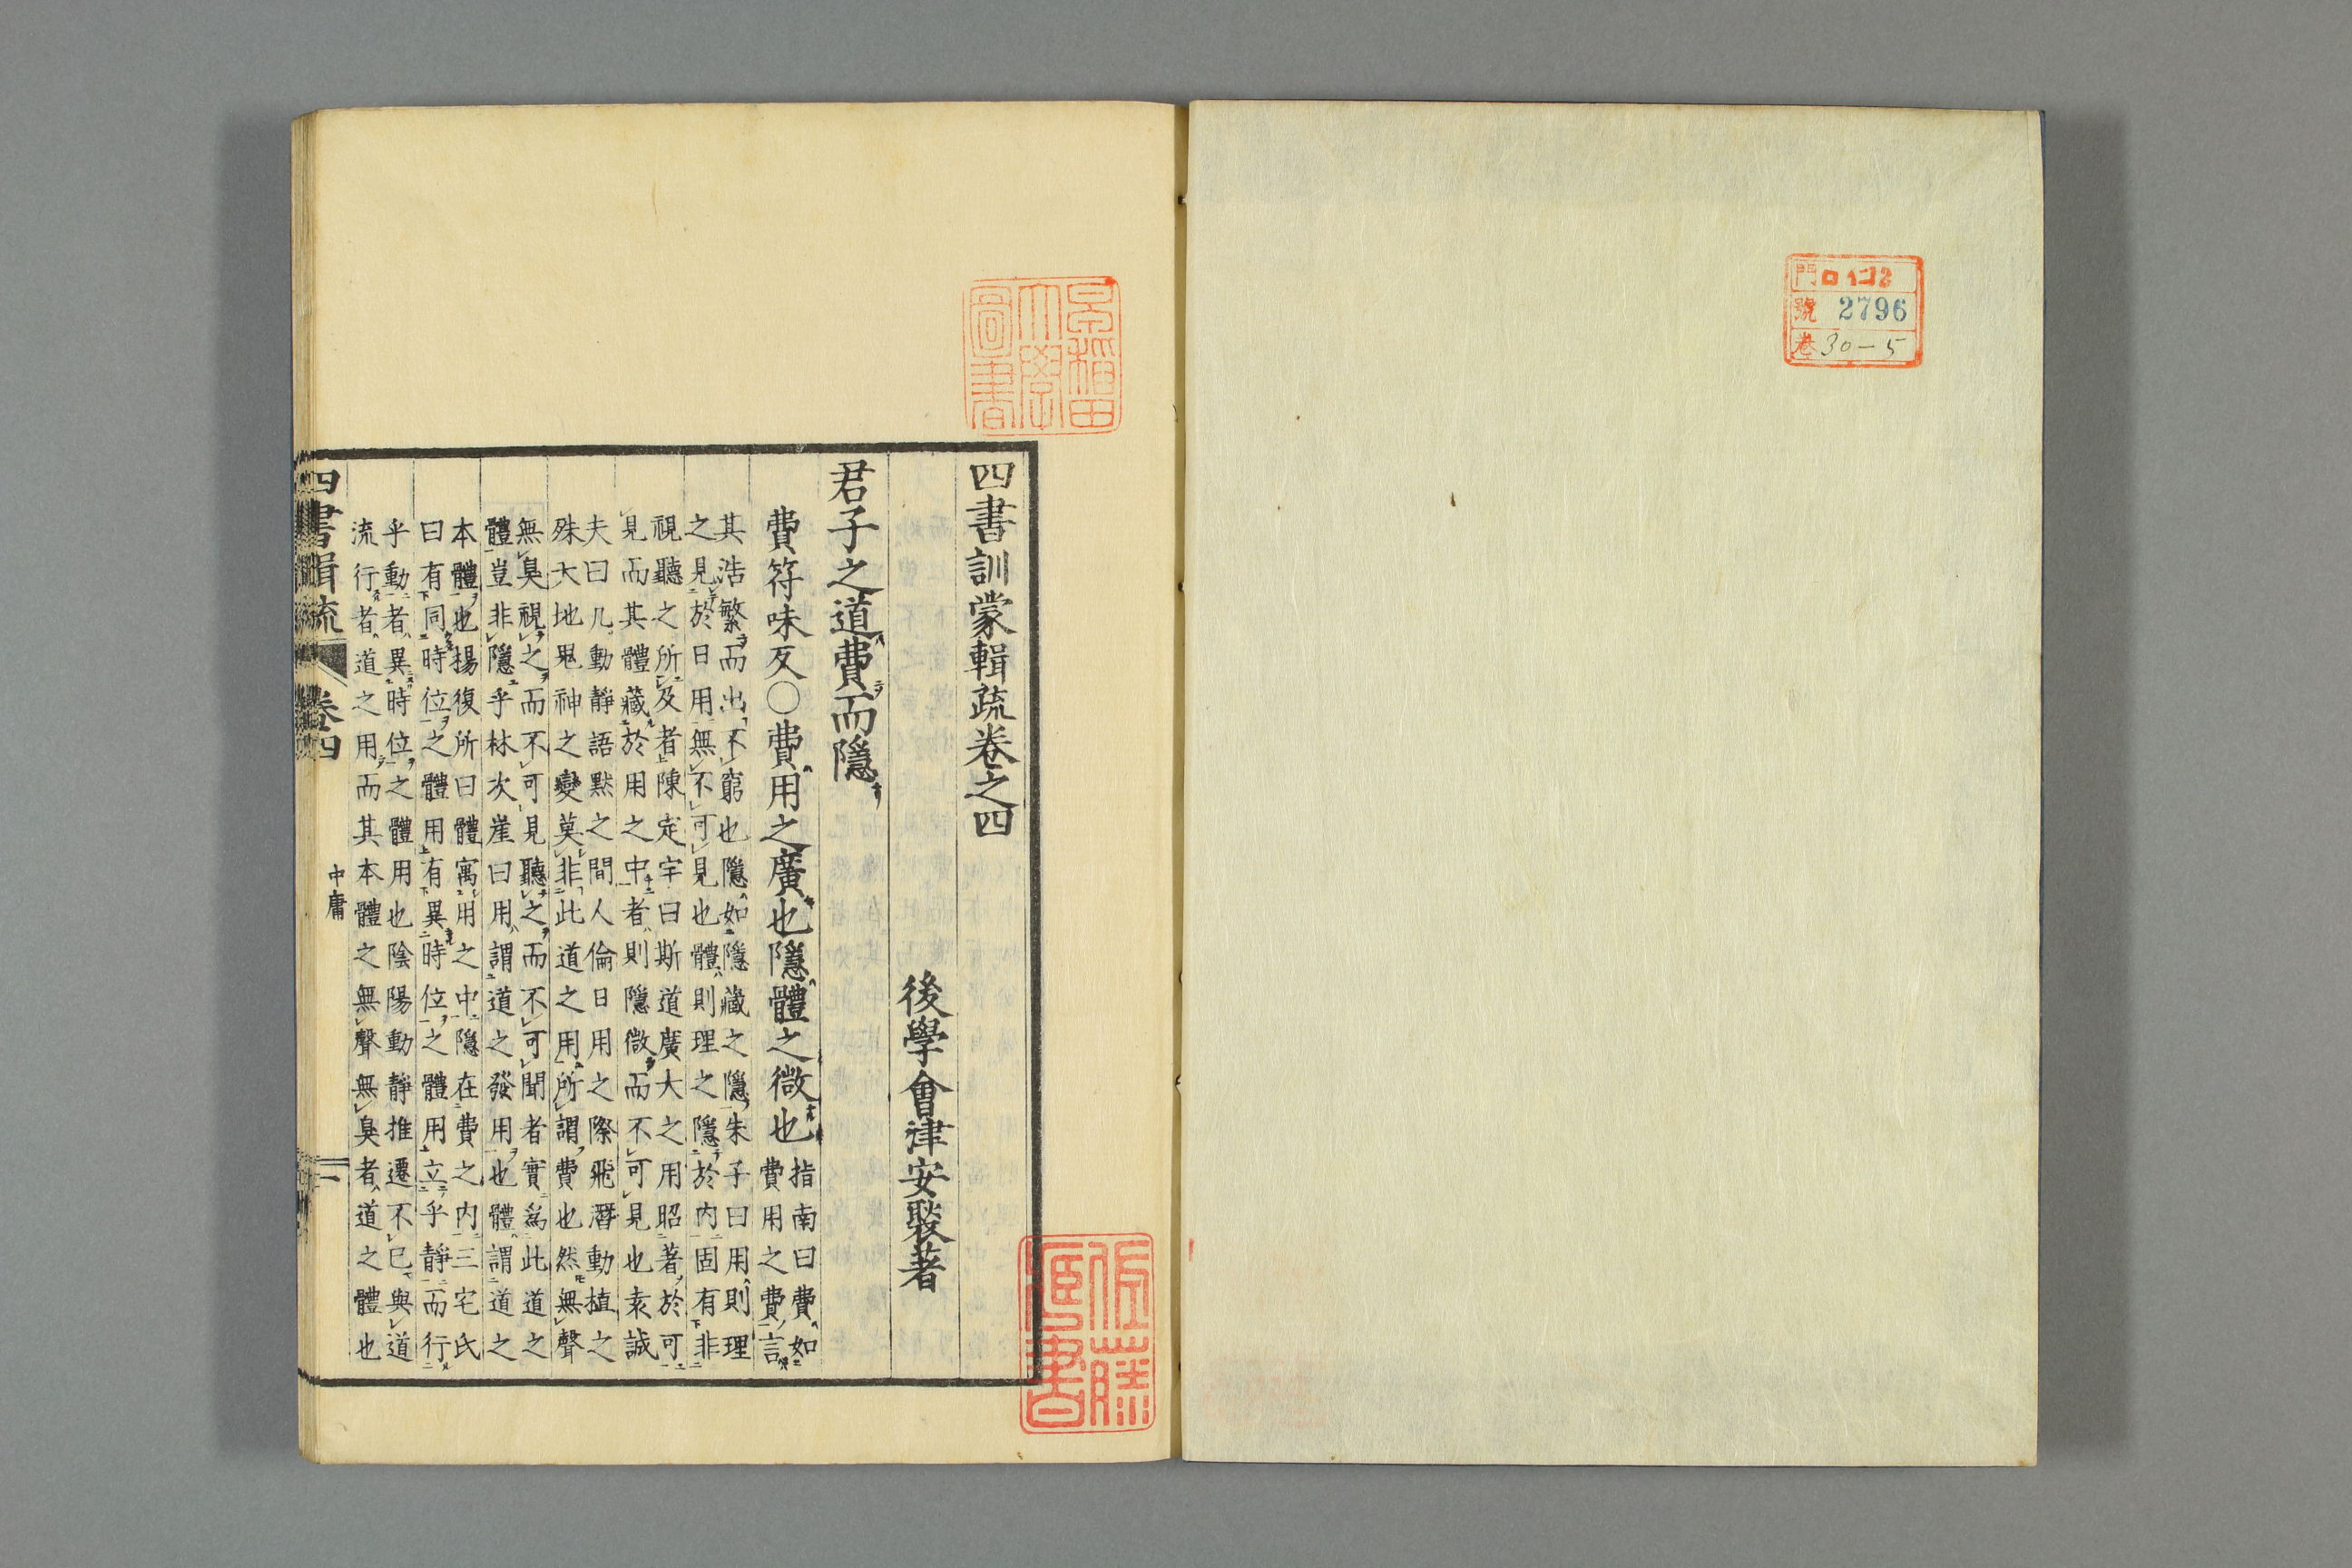 門 ロ12
號 2796
巻 30-5
早稲田大學圖書
四書訓蒙輯疏卷之四
後學會津安褧著
君子之道費而隱
費符味反○費用之廣也隱體之微也
指南曰費如
費用之費言
其浩繁而出不窮也隱如隱藏之隱朱子曰用則理
之見於日用無不可見也體則理之隱於内固有非
視聽之所及者陳定宇曰斯道廣大之用昭著於可
見而其體藏於用之中者則隱微而不可見也袁誠
夫曰凡動靜語默之間人倫日用之際飛潛動植之
殊天地鬼神之變莫非此道之用所謂費也然無聲
無臭視之而不可見聽之而不可聞者實爲此道之
體豈非隱乎林次崖曰用謂道之發用也體謂道之
本體也揚復所曰體寓用之中隱在費之内三宅氏
曰有同時位之體用有異時位之體用立乎靜而行
乎動者異時位之體用也陰陽動靜推遷不已與道
流行者道之用而其本體之無聲無臭者道之體也
四書輯疏 卷四
中庸
一
佐藤
書